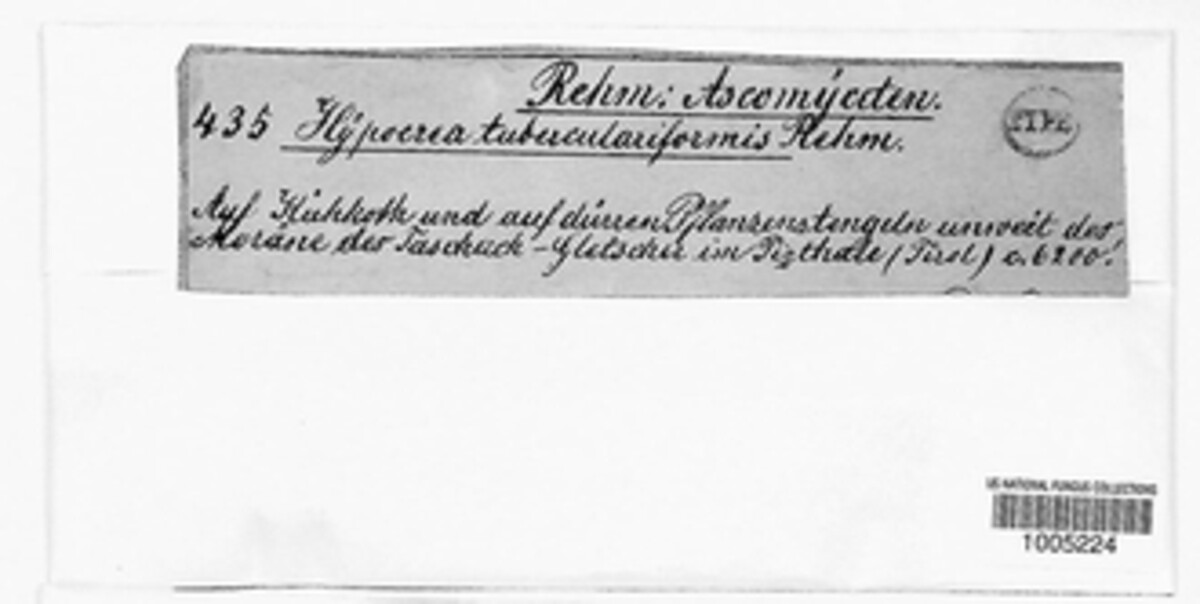 Rehm: Ascomÿceten.
TYPE
435 Hÿpocrea tuberculariformis Rehm.
Auf Kuhkoth und auf dürren Pflanzenstengeln unweit der
Moräne des Taschach-Gletscher im Pizthale (Tirol) c. 6200'.
US NATIONAL FUNGUS COLLECTIONS
1005224